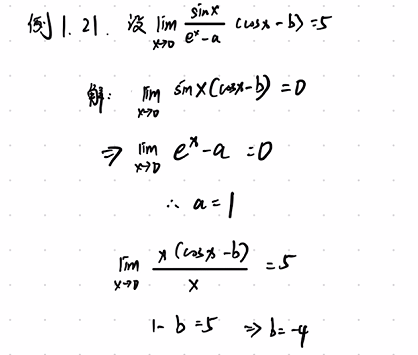 例1.21. 设 lim x→0 sinx/(e^x-a) (cosx-b)=5
解: lim x→0 sinx(cosx-b)=0
⇒ lim x→0 e^x-a=0
∴ a=1
lim x→0 x(cosx-b)/x =5
1-b=5 ⇒b=-4